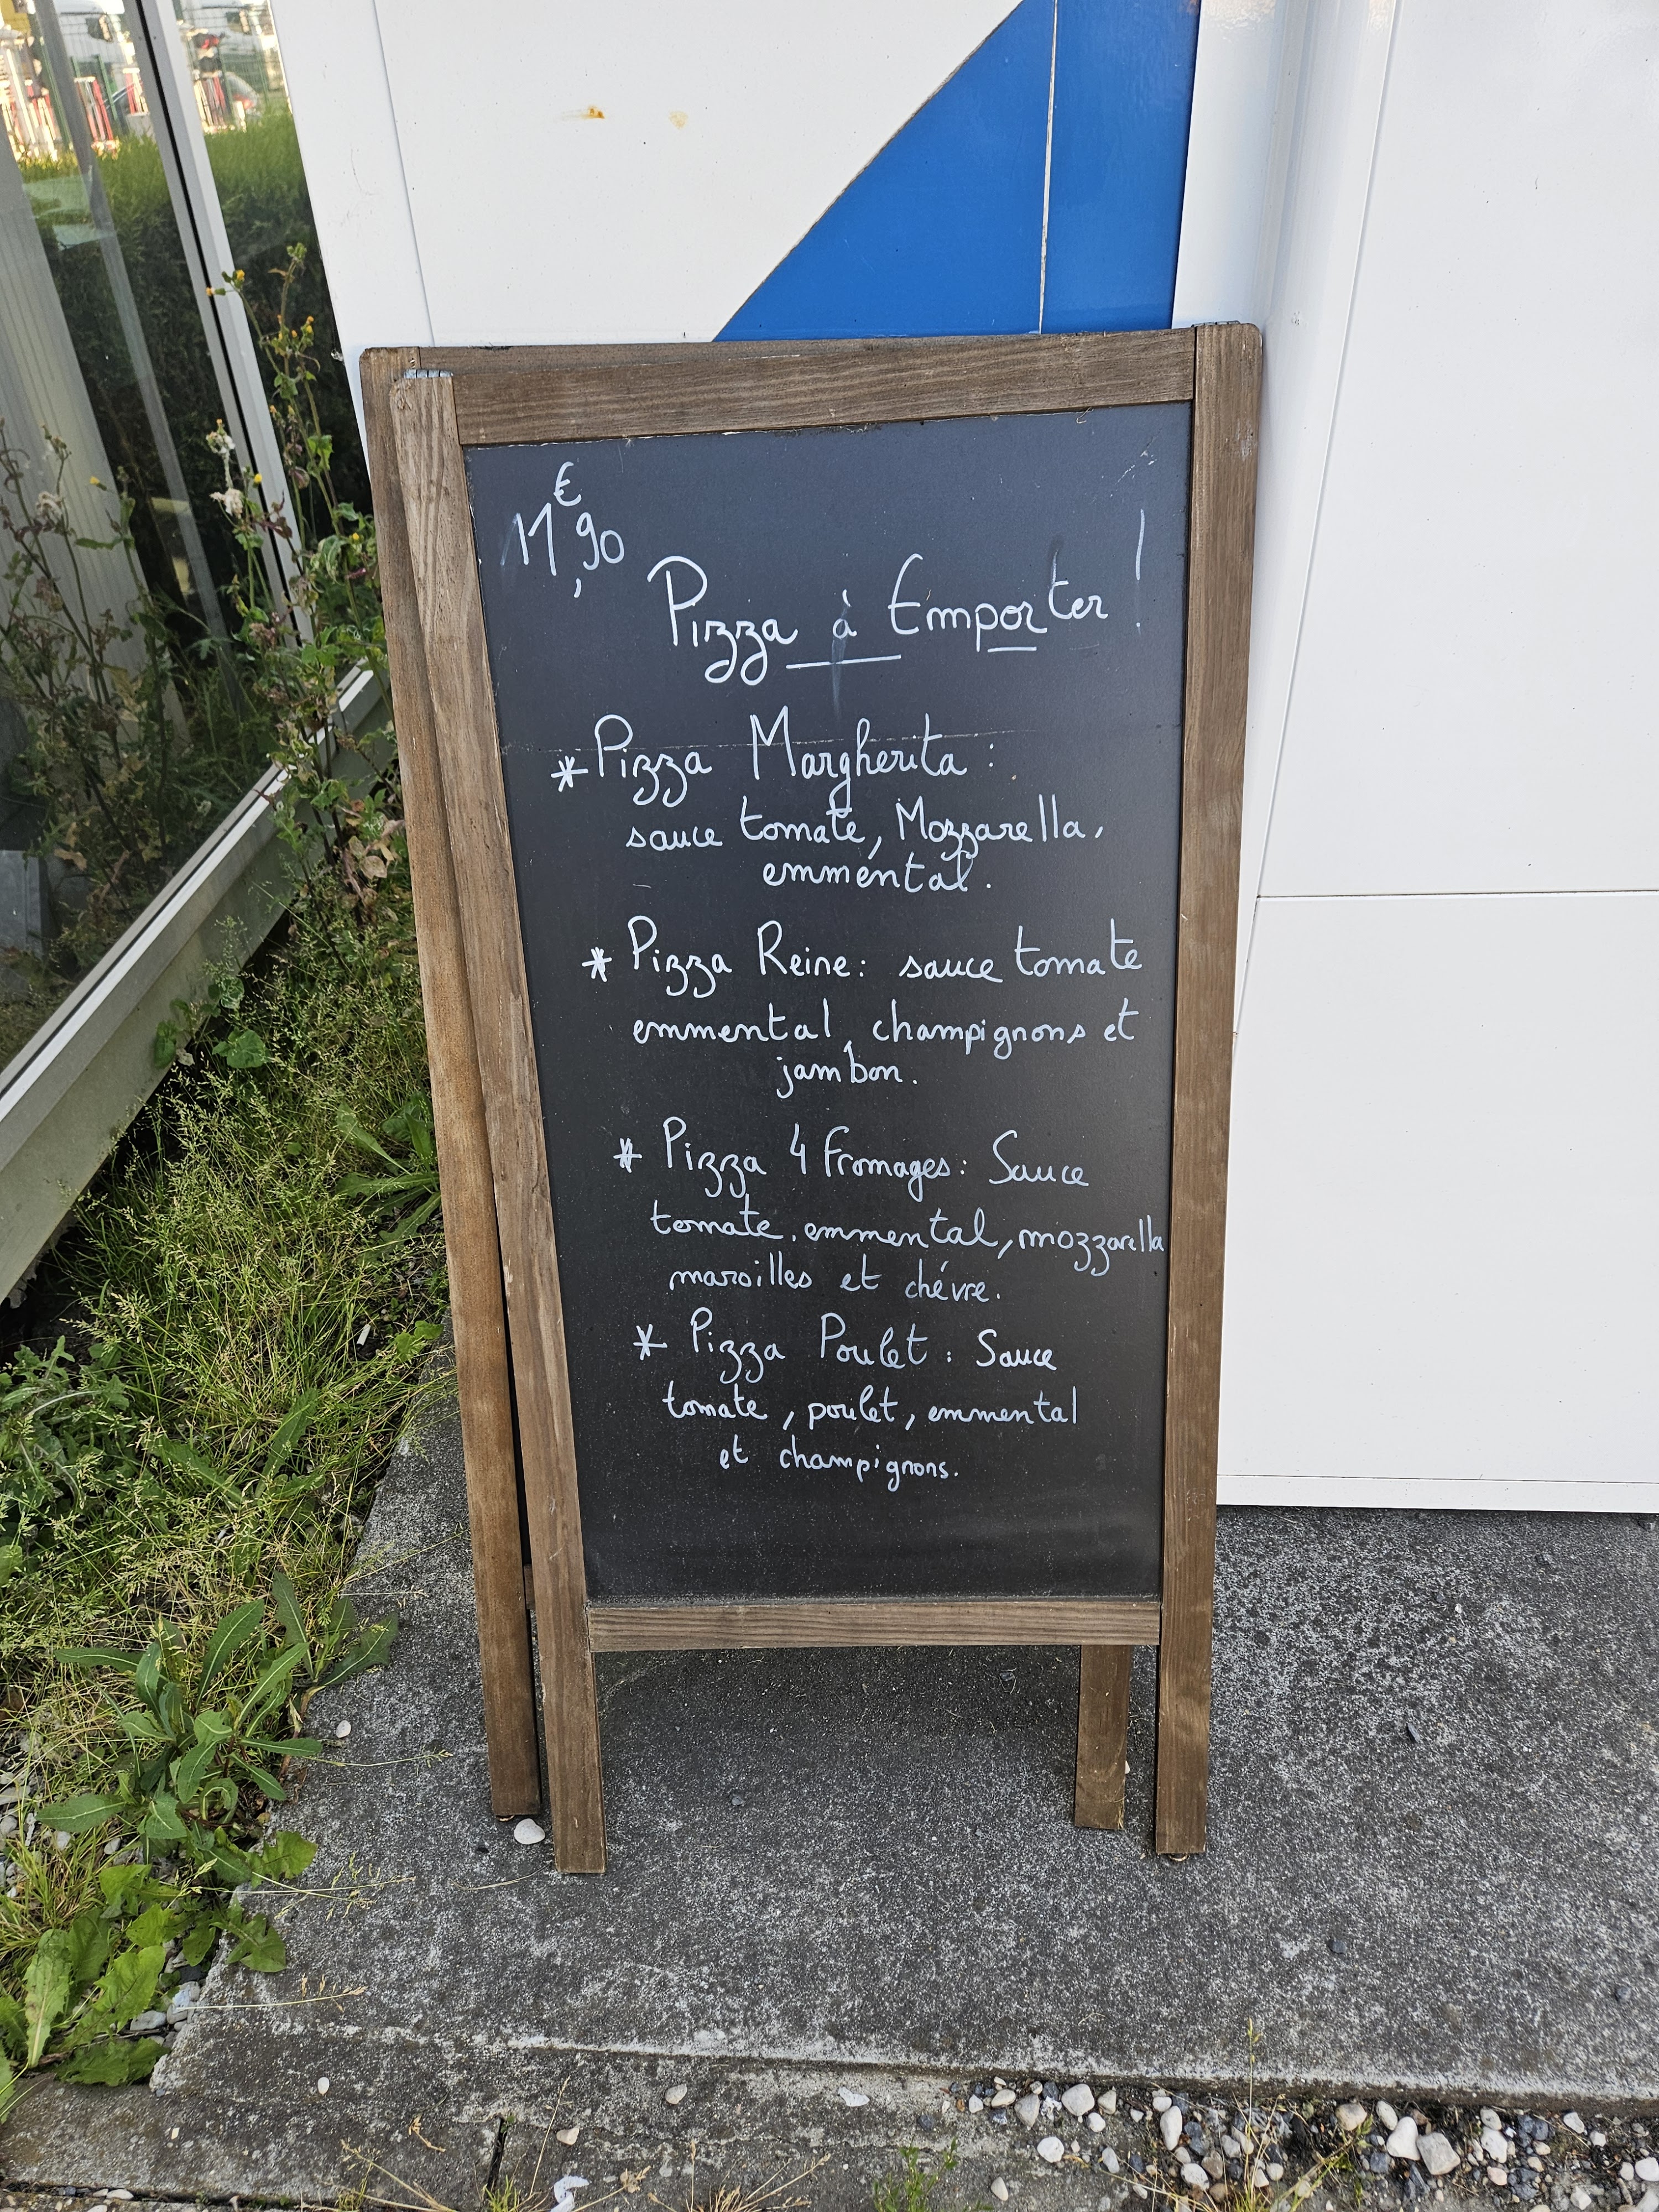 11€,90
Pizza à Emporter !
* Pizza Margherita :
sauce tomate, Mozzarella,
emmental.
* Pizza Reine : sauce tomate
emmental, champignons et
jambon.
* Pizza 4 Fromages : Sauce
tomate, emmental, mozzarella
maroilles et chévre.
* Pizza Poulet : Sauce
tomate, poulet, emmental
et champignons.